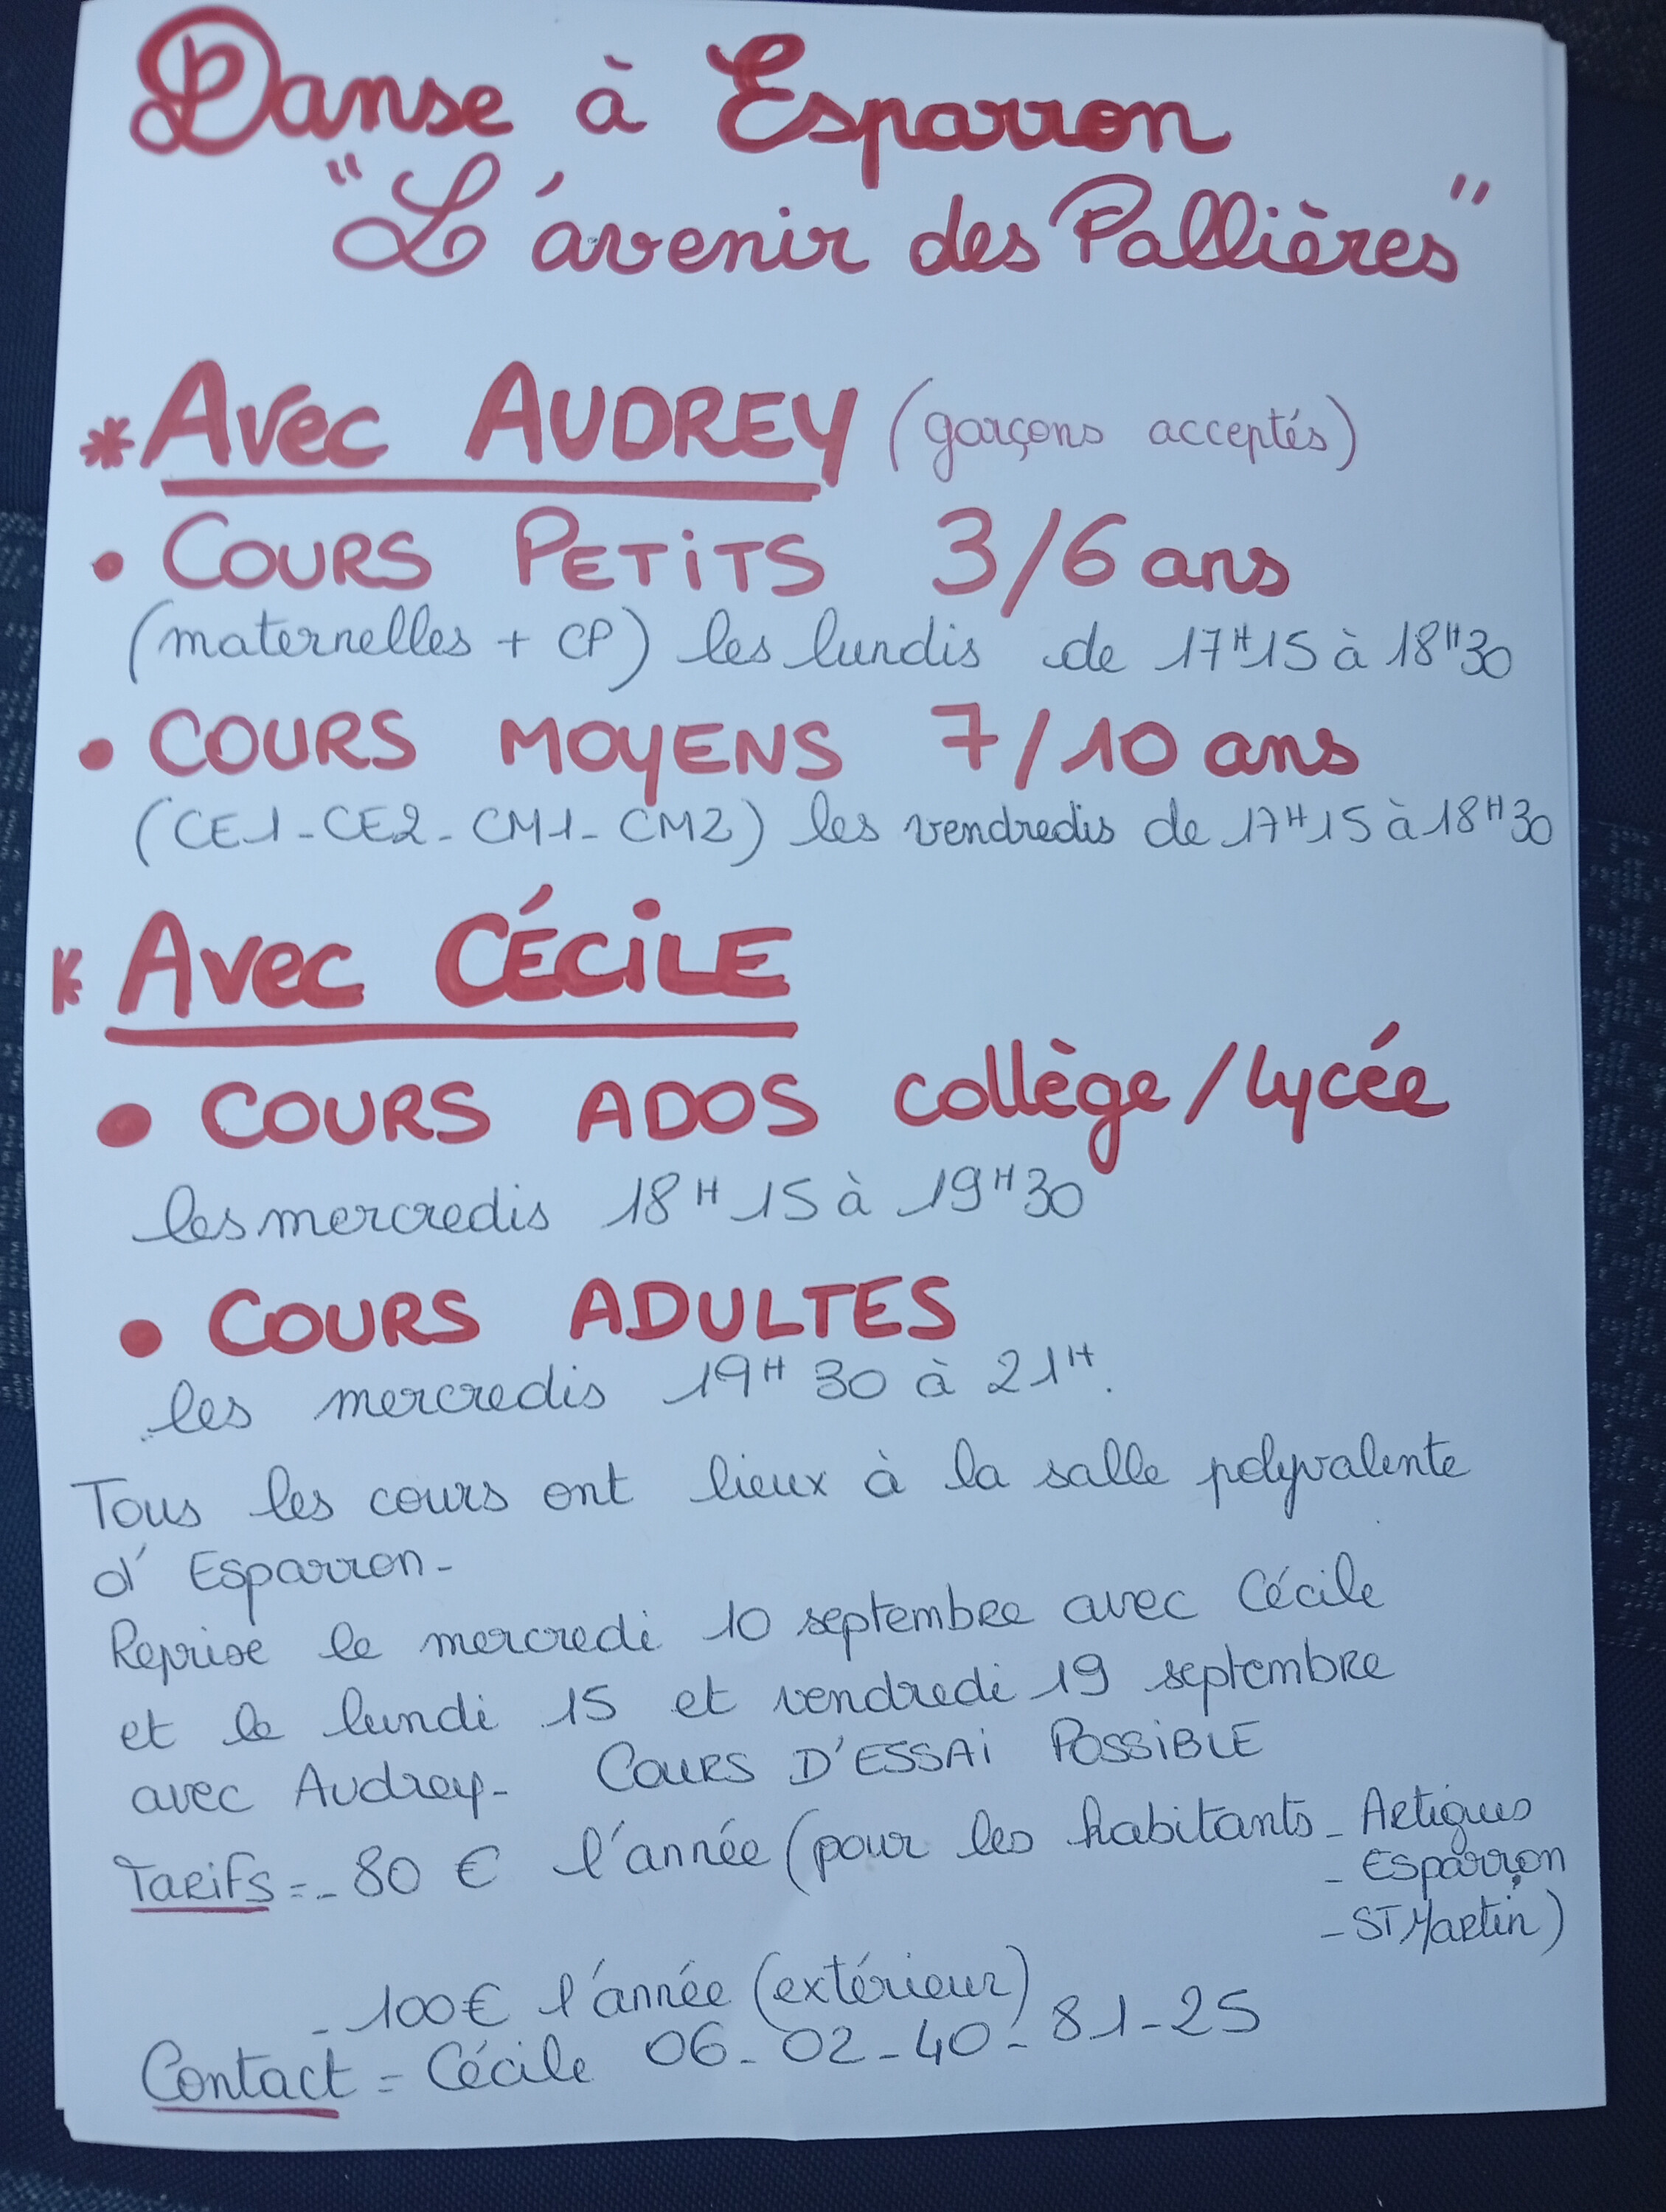 Danse à Esparron
"L'avenir des Pallières"
* Avec AUDREY (garçons acceptés)
• COURS PETITS 3/6 ans
(maternelles + CP) les lundis de 17H15 à 18H30
• COURS MOYENS 7/10 ans
(CE1-CE2-CM1-CM2) les vendredis de 17H15 à 18H30
* Avec CÉCILE
• COURS ADOS collège/lycée
les mercredis 18H15 à 19H30
• COURS ADULTES
les mercredis 19H30 à 21H.
Tous les cours ont lieux à la salle polyvalente
d'Esparron-
Reprise le mercredi 10 septembre avec Cécile
et le lundi 15 et vendredi 19 septembre
avec Audrey- COURS D'ESSAI POSSIBLE
Tarifs = - 80 € l'année (pour les habitants - Artigues
- Esparron
- ST Martin)
- 100€ l'année (extérieur)
Contact = Cécile 06-02-40-81-25